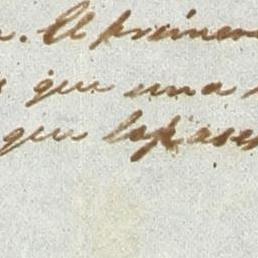 . El primer
que una
que la pase